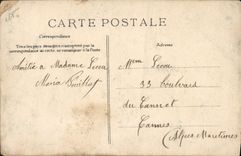 CARTE POSTALE
Correspondance
Tous les pays étrangers n'acceptent pas la
correspondance au recto, se renseigner à la Poste
Adresse
Amitié à Madame
Maria
Mme
33 boulevard
du
Cannes
(Alpes Maritimes)